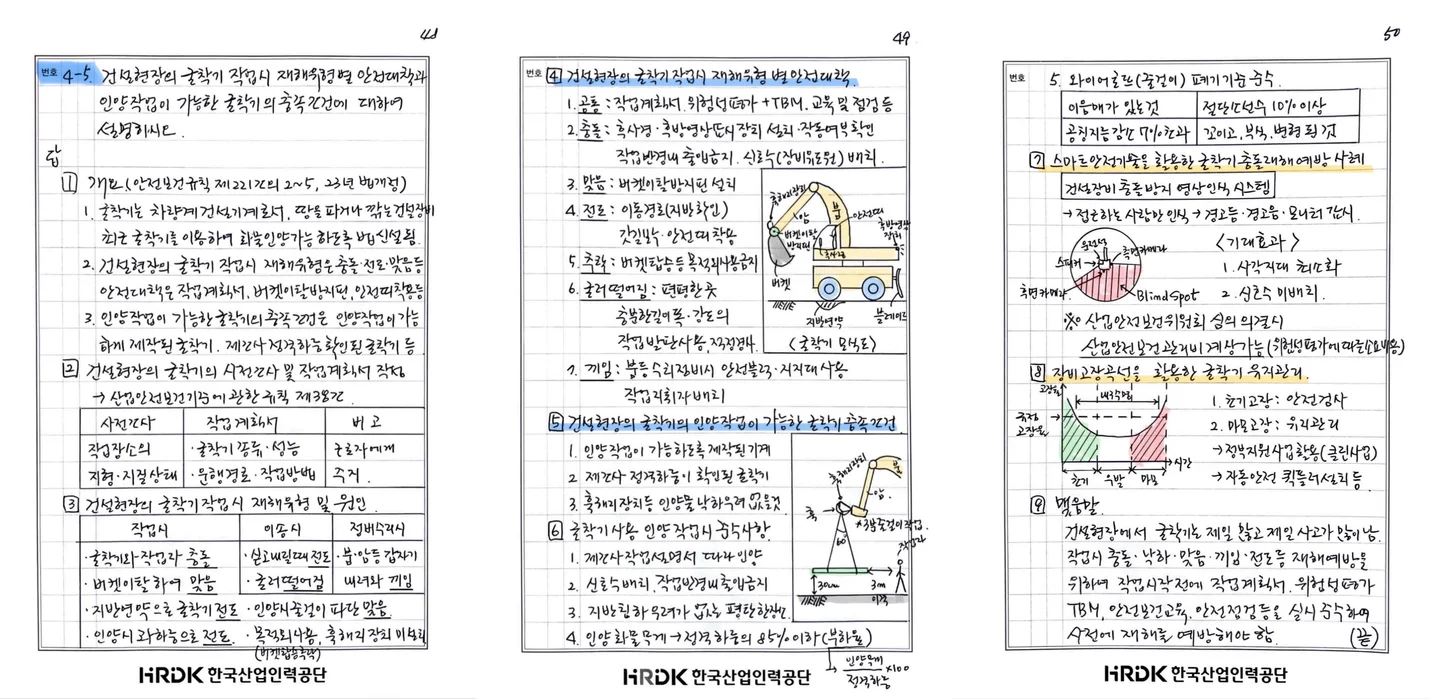 48
번호 4-5. 건설현장의 굴착기 작업시 재해유형별 안전대책과
인양작업이 가능한 굴착기의 충족조건에 대하여
설명하시오.
답
1 개요 (안전보건규칙 제221조의 2~5, 23년 법개정)
1. 굴착기는 차량계 건설기계로서, 땅을 파거나 깎는 건설장비
최근 굴착기를 이용하여 화물인양가능하도록 법 신설됨.
2. 건설현장의 굴착기 작업시 재해유형은 충돌·전도·맞음 등
안전대책은 작업계획서, 버켓이탈방지핀, 안전띠착용 등
3. 인양작업이 가능한 굴착기의 충족조건은 인양작업이 가능
하게 제작된 굴착기. 제조사 정격하능 확인된 굴착기 등.
2 건설현장의 굴착기의 사전조사 및 작업계획서 작성
→ 산업안전보건기준에 관한 규칙 제38조.
사전조사 작업계획서 비고
작업장소의 ·굴착기 종류·성능 근로자에게
지형·지질상태 ·운행경로·작업방법 주지.
3 건설현장의 굴착기 작업시 재해유형 및 원인
작업시 이송시 정비수리시
·굴착기와 작업자 충돌 ·싣고내릴때 전도 ·붐·암등 갑자기
·버켓이탈하여 맞음 ·굴러떨어짐 내려와 끼임
·지반연약으로 굴착기 전도 ·인양시 줄걸이 파단 맞음.
·인양시 과하능으로 전도. ·목적외사용, 훅해지장치 미설치
(버켓탑승추락)
HRDK 한국산업인력공단
49
번호 4 건설현장의 굴착기 작업시 재해유형별 안전대책
1. 공통 : 작업계획서. 위험성평가 + TBM. 교육 및 점검 등
2. 충돌 : 후사경·후방영상표시장치 설치·작동여부확인
작업반경내 출입금지. 신호수(장비유도원) 배치.
3. 맞음 : 버켓이탈방지핀 설치
4. 전도 : 이동경로(지반확인)
갓길붕괴·안전띠 착용
5. 추락 : 버켓탑승등 목적외사용금지
6. 굴러떨어짐 : 편평한곳
충분한길이·폭·강도의
작업발판사용, 적정경사.
7. 끼임 : 붐등 수리정비시 안전블럭·지지대 사용
작업지휘자 배치
훅해지장치
암
붐
안전띠
후방영상장치
버켓이탈방지핀
후사경
버켓
지반연약
블레이드
<굴착기 모식도>
5 건설현장의 굴착기의 인양작업이 가능한 굴착기 충족조건
1. 인양작업이 가능하도록 제작된 기계
2. 제조사 정격하능이 확인된 굴착기
3. 훅해지장치등 인양물 낙하우려 없을것
6 굴착기사용 인양작업시 준수사항
1. 제조사작업설명서 따라 인양
2. 신호수배치, 작업반경내 출입금지
3. 지반침하우려가 없는 평탄한장소
4. 인양화물무게 → 정격하능의 85% 이하 (부하율)
→ 인양무게/정격하능 ×100
훅해지장치
붐
암
훅
60°
작업자
30cm
3m
이격
HRDK 한국산업인력공단
50
번호 5. 와이어로프(줄걸이) 폐기기준 준수
이음매가 있는것 절단소선수 10% 이상
공칭지름감소 7%초과 꼬이고, 부식, 변형 된 것
7 스마트안전기술을 활용한 굴착기 충돌재해예방 사례
건설장비 충돌방지 영상인식 시스템
→ 접근하는 사람만 인식 → 경고등·경고음·모니터 감시.
운전석
스피커
측면카메라
후면카메라
Blind Spot
<기대효과>
1. 사각지대 최소화
2. 신호수 미배치.
※ 산업안전보건위원회 심의 의결시
산업안전보건관리비 계상가능 (위험성평가에 따른소요비용)
8 장비고장곡선을 활용한 굴착기 유지관리.
고장율
내구수명
규정고장율
시간
초기 우발 마모
1. 초기고장 : 안전검사
2. 마모고장 : 유지관리
→ 정부지원사업활용(클린사업)
→ 자동안전 퀵플러설치 등
9 맺음말.
건설현장에서 굴착기는 제일 많고 제일 사고가 많이 남.
작업시 충돌·낙하·맞음·끼임·전도 등 재해예방을
위하여 작업시작전에 작업계획서. 위험성평가
TBM, 안전보건교육, 안전점검등을 실시 준수하여
사전에 재해를 예방해야 함. (끝)
HRDK 한국산업인력공단